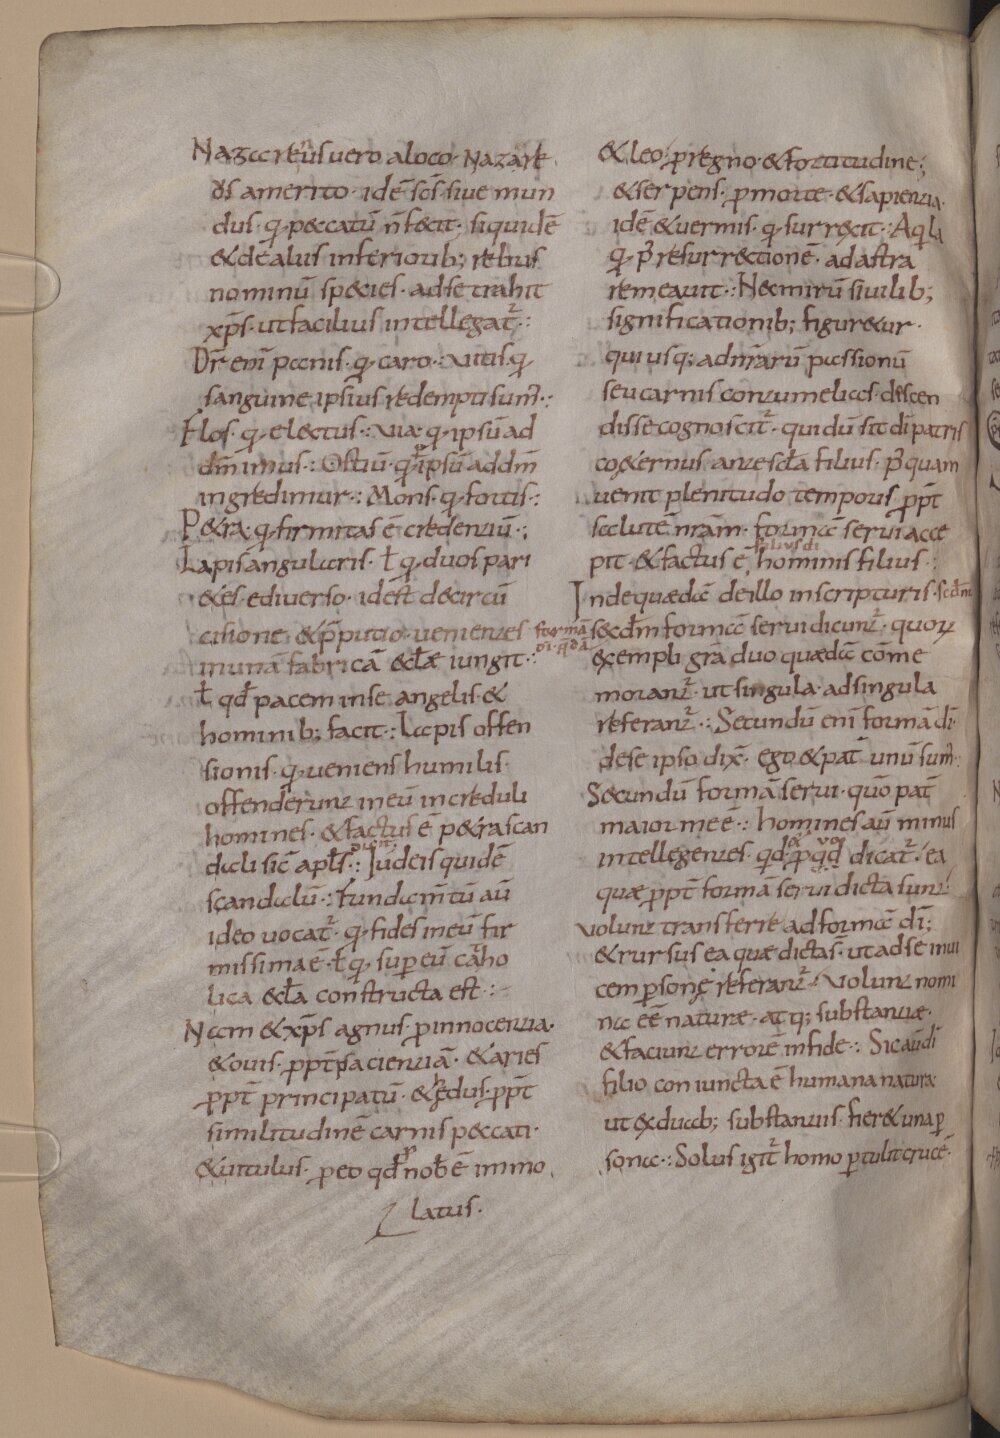 Nazarenus uero a loco· Nazare
ds amerito· idē scs̄ siue mun
dus· q· peccatū n̄ fecit· siquidē
& de alus inferiorib; rebus
nominū species· adse trahit
xp̄s· ut facilius intellegat̄·:
Dr̄ enī panis· q· caro·: Uitis· q·
sanguine ipsius redempti sum̄·:
Flos· q· electus·: Uia· q· ipsū ad
dm̄ imus·: Ostiū· q· ipsū addm̄
ingredimur·: Mons· q· fortis·:
P&ra· q· firmitas ē credentiū·:
Lapis angularis· ł q· duos pari
&es ediuerso· idest decircū
cisione &p̄putio· uenientes
inunā fabricā &ctæ iungit·:
ł qd̄ pacem inse angelis &
hominib; facit·: Lapis offen
sionis· q· ueniens humilis·
offenderunt ineū increduli
homines· & factus ē p&ra scan
dali sic̄ apłs·: dicit Iudeis quidē
scandalū·: Fundam̄tū aū
ideo uocat̄· q· fides ineū fir
missima ē· ł q· super eū catho
lica &cła constructa est·:
Nam & xp̄s agnus· p innocentia·
& ouis· ppt̄ pacientiā· & aries
ppt̄ principatū· & hedus· ppt̄
similitudinē carnis peccati·
& uitulus· peo qd̄ p nob̄ ē immo
latus·
& leo· p regno· & fortitudine;
& serpens· p morte· & sapientia·
idē & uermis· q· surrexit·: Aq̄la
q· p̄ resurrectionē· ad astra
remeauit·: Nec mirū si uilib;
significationib; figur&ur·
qui usq; ad nr̄arū passionū
seu carnis contumelias· descen
disse cognoscit̄· qui dū sit dī patris
co&ernus· ante scła filius· p̄quam
uenit plenitudo temporis ppt̄
salutē nr̄am· formā serui acce
pit· & factus ē, filius dī hominis filius·:
Inde quædā deillo inscripturis· scdm̄
formā dī· q̄dā secdm̄ formā serui dicunt̄· quorꝝ
exempli gr̄a duo quædā cōme
morant̄· ut singula· adsingula
referant̄·: Secundū enī formā dī·
dese ipso dix̄· ego & pat̄ unū sum̄·:
Secundū formā serui· quō pat̄
maior me ē·: homines aū minus
intellegentes· qd̄ p quo d̄ dicat̄· ea
quæ ppt̄ formā serui dicta sunt·
uolunt transferre adformā dī;
& rursus ea quæ dictas̄· ut adse inui
cem persone referant̄· uolunt nomi
na eē naturæ· atq; substantiæ·
& faciunt errorē infide·: Sic aū dī
filio coniuncta ē humana natura
ut ex duab; substantiis· fier& una per
sona·: Solus igit̄ homo pertulit crucē·